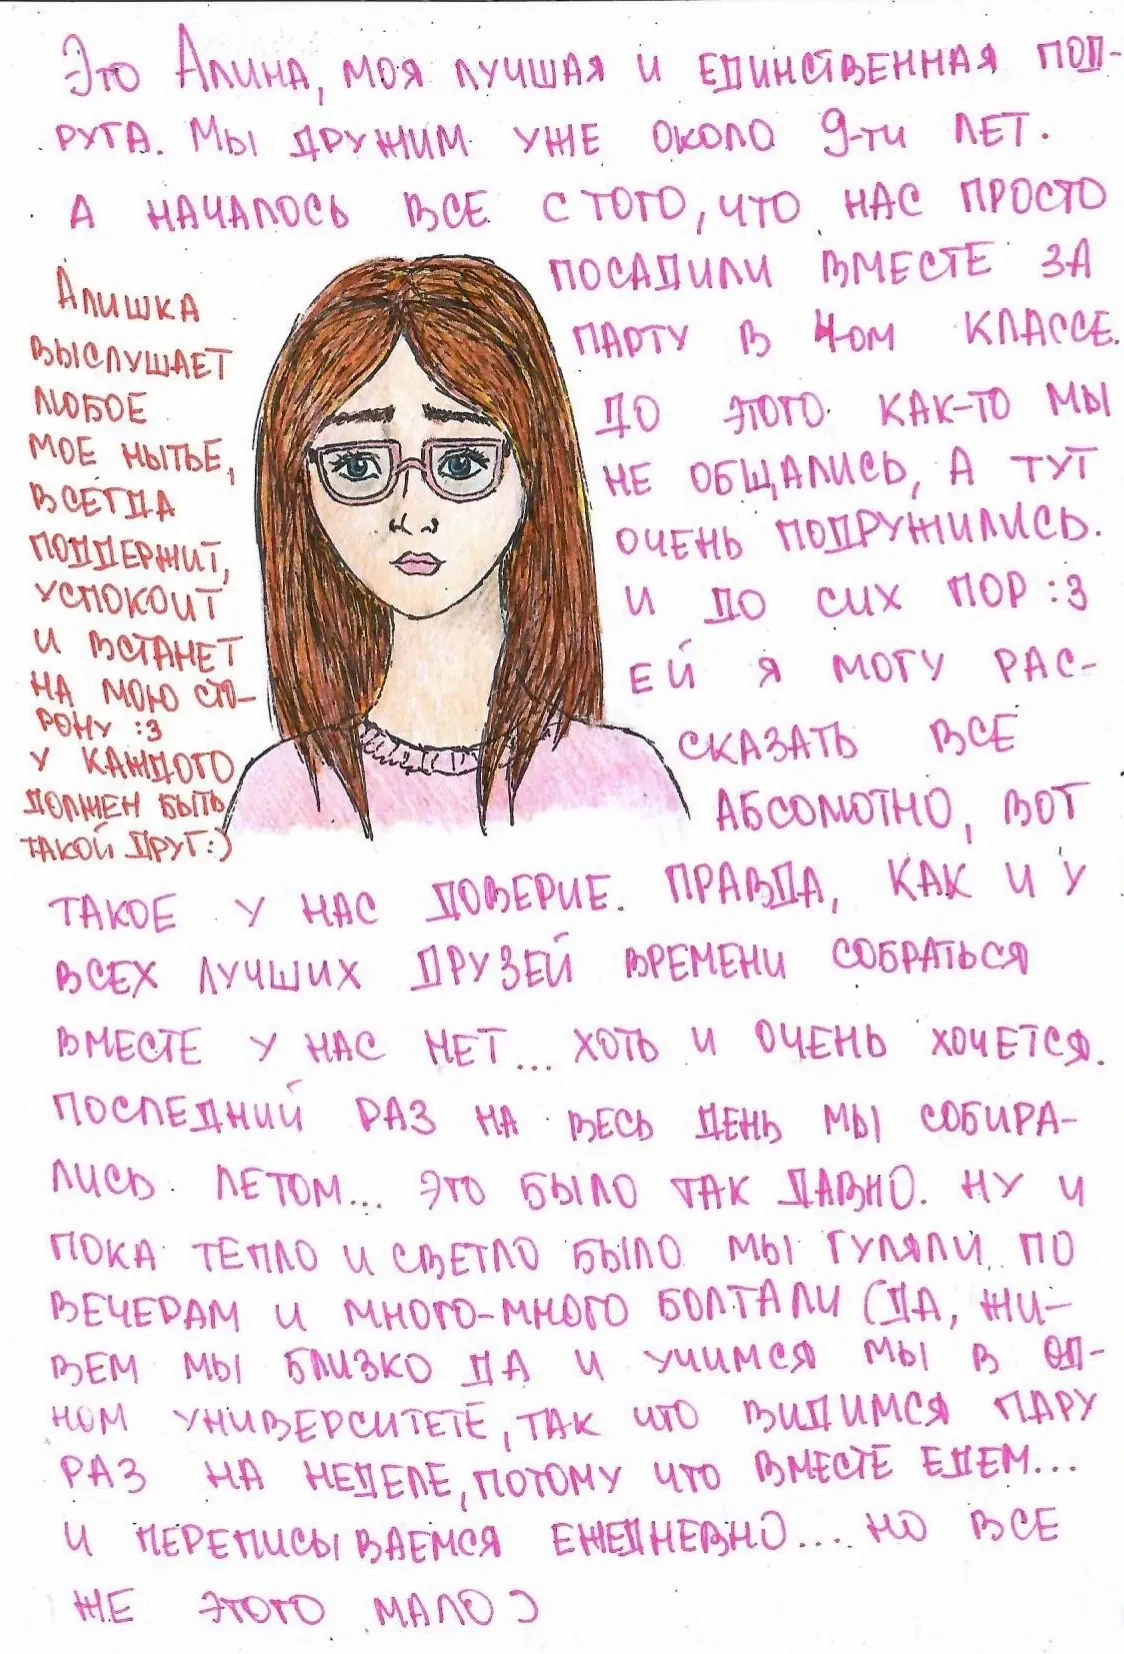 Это Алина, моя лучшая и единственная под-
руга. Мы дружим уже около 9-ти лет.
А началось все с того, что нас просто
посадили вместе за
парту в 4-ом классе.
До этого как-то мы
не общались, а тут
очень подружились.
И до сих пор :3
Ей я могу рас-
сказать все
абсолютно, вот
такое у нас доверие. Правда, как и у
всех лучших друзей времени собраться
вместе у нас нет... хоть и очень хочется.
Последний раз на весь день мы собира-
лись летом... это было так давно. Ну и
пока тепло и светло было мы гуляли по
вечерам и много-много болтали (да, жи-
вем мы близко да и учимся мы в од-
ном университете, так что видимся пару
раз на неделе, потому что вместе едем...
и переписываемся ежедневно.... но все
же этого мало Ɔ
Алишка
выслушает
любое
мое нытье,
всегда
поддержит,
успокоит
и встанет
на мою сто-
рону :3
У каждого
должен быть
такой друг:)